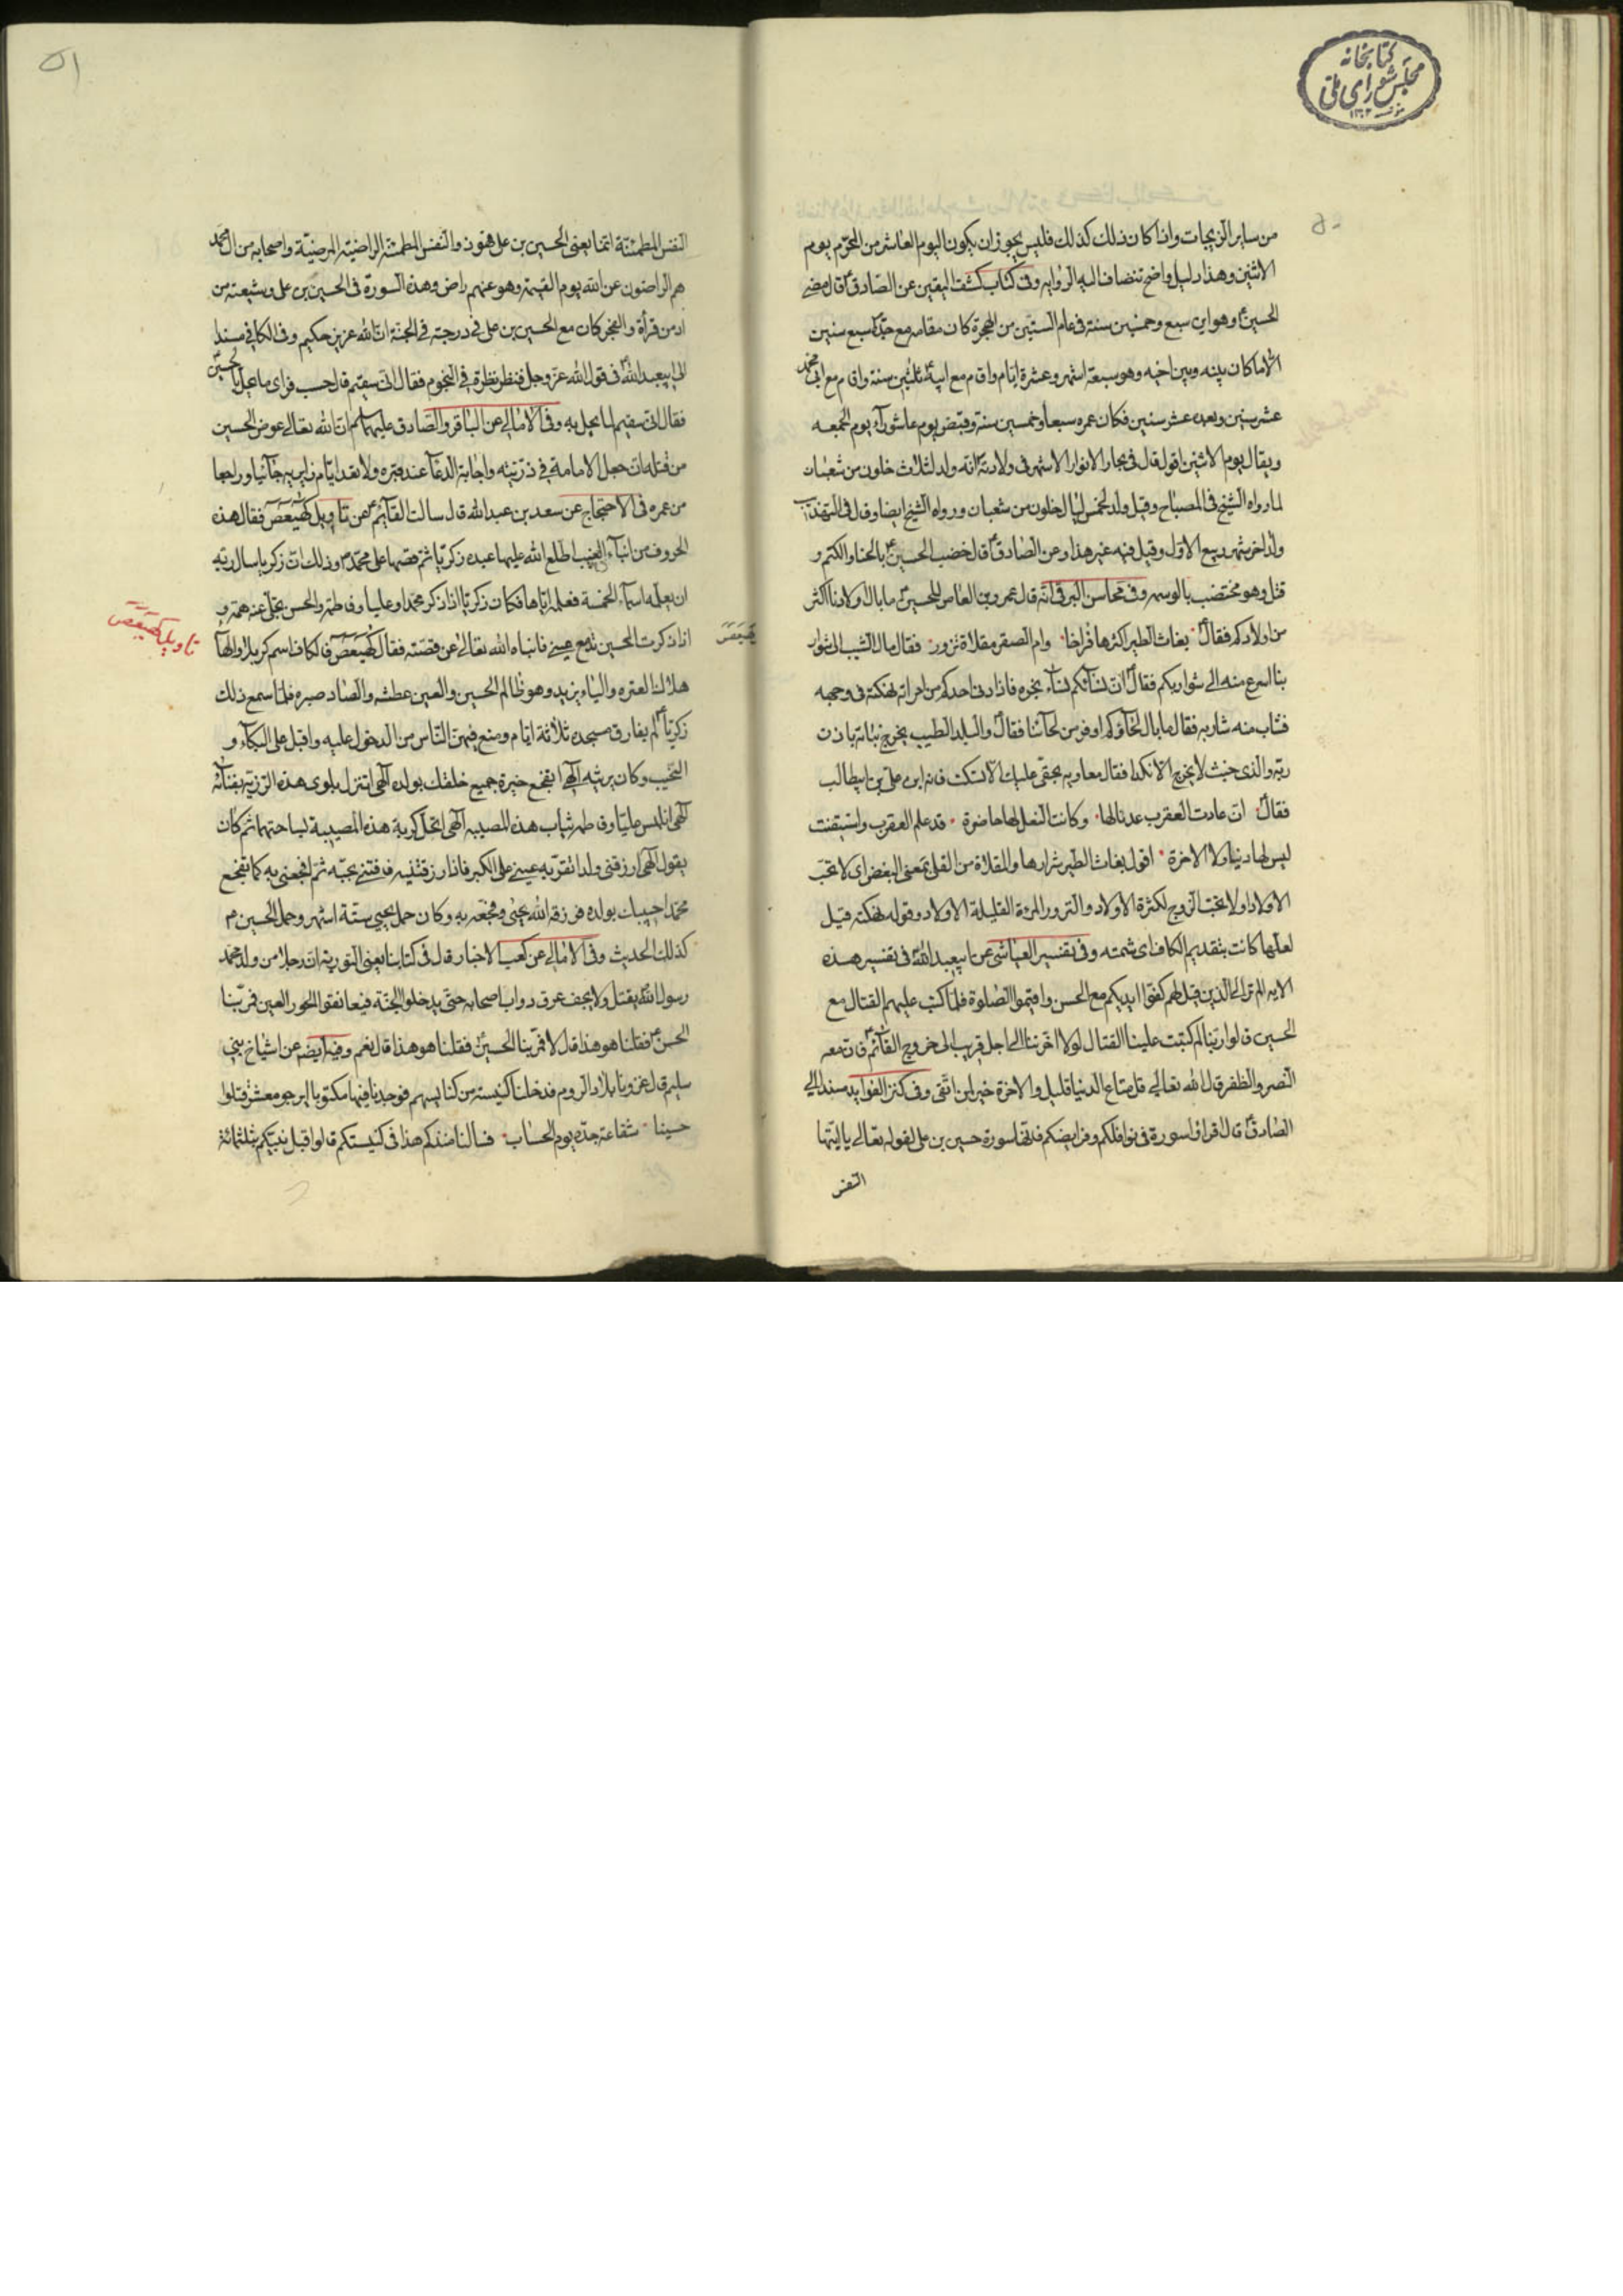 كتابخانه
مجلس شورای ملی
۵۰
من ساير الزيجات واذا كان ذلك كذلك فليس يجوز ان يكون اليوم العاشر من المحرم يوم
الاثنين وهذا دليل واضح تنضاف اليه الرواية وفى كتاب كشف اليقين عن الصادقؑ قال مضى
الحسينؑ وهو ابن سبع وخمسين سنة فى عام الستين من الهجرة كان مقامه مع جده سبع سنين
الا ما كان بينه وبين اخيه وهو سبعة اشهر وعشرة ايام واقام مع ابيهؑ ثلثين سنة واقام مع ابى محمد
عشر سنين وبعده عشر سنين فكان عمره سبعا وخمسين سنة وقبض يوم عاشوراء يوم الجمعه
ويقال يوم الاثنين اقول قال فى بحار الانوار الاشهر فى ولادتهؑ انه ولد لثلاث خلون من شعبان
لما رواه الشيخ فى المصباح وقيل ولد لخمس ليال خلون من شعبان ورواه الشيخ ايضا وقال فى التهذيب
ولد اخر شهر ربيع الاول وقيل فيه غير هذا وعن الصادقؑ قال خضب الحسينؑ بالحنا والكتم و
قتل وهو مختضب بالوسمه وفى محاسن البرقى انه قال عمرو بن العاص للحسينؑ ما بال اولادنا اكثر
من اولادكم فقالؑ بغاث الطير اكثرها فراخا وام الصقر مقلاة نزور فقال ما بال الشيب الى شوار
بنا اسرع منه الى شواربكم فقالؑ ان نسائكم نساء بخره فاذا دنى احدكم من امراته نهكته فى وجهه
فشاب منه شاربه فقال ما بال لحاؤكم اوفر من لحائنا فقالؑ والبلد الطيب يخرج نباته باذن
ربه والذى خبث لا يخرج الا نكدا فقال معاويه بحقى عليك الا سكت فانه ابن على بن ابيطالب
فقالؑ ان عادت العقرب عدنا لها وكانت النعل لها حاضرة قد علم العقرب واستيقنت
ليس لها دنيا ولا الاخرة اقول بغاث الطير شرارها والمقلاة من القلى بمعنى البغض اى لا تحب
الاولاد او لا تحب الزوج لكثرة الاولاد والنزور المرئة القليلة الاولاد وقوله نهكته قيل
لعلها كانت بتقديم الكاف اى شمته وفى تفسير العياشى عن ابيعبد اللهؑ فى تفسير هذه
الايه الم تر الى الذين قيل لهم كفوا ايديكم مع الحسن واقيموا الصلوة فلما كتب عليهم القتال مع
الحسين قالوا ربنا لم كتبت علينا القتال لولا اخرتنا الى اجل قريب الى خروج القائمؑ فان معه
النصر والظفر قال الله تعالى قل متاع الدنيا قليل والاخرة خير لمن اتقى وفى كنز الفوايد مسندا الى
الصادقؑ قال اقراؤا سورة الفجر فى نوافلكم وفرايضكم فانها سورة حسين بن على لقوله تعالى يا ايتها
النفس
۵۱
النفس المطمئنة انما يعنى الحسين بن على فهو ذو النفس المطمئنة الراضية المرضية واصحابه من ال محمد
هم الراضون عن الله يوم القيمة وهو عنهم راض وهذه السورة فى الحسين بن على وشيعته من
ادمن قرأة والفجر كان مع الحسين بن على فى درجته فى الجنة ان الله عزيز حكيم وفى الكافى مسندا
الى ابيعبد اللهؑ فى قول الله عز وجل فنظر نظرة فى النجوم فقال انى سقيم قال حسب فراى ما يحل بالحسينؑ
فقال انى سقيم لما يحل به وفى الامالى عن الباقر والصادق عليهما سلم ان الله تعالى عوض الحسين
من قتله ان جعل الامامة فى ذريته واجابة الدعاء عند قبره ولا تعد ايام زايريه جائيا وراجعا
من عمره فى الاحتجاج عن سعد بن عبد الله قال سالت القائمؑ عن تاويل كهيعص فقال هذه
الحروف من انباء الغيب اطلع الله عليها عبده زكريا ثم قصها على محمدؐ وذلك ان زكريا سال ربه
ان يعلمه اسماء الخمسة فعلمه اياها فكان زكريا اذا ذكر محمدا وعليا وفاطمة والحسن تجلى عنه همه و
اذا ذكرت الحسين تدمع عينى فانباه الله تعالى عن قصته فقال كهيعص فالكاف اسم كربلا والهاء
هلاك العتره والياء يزيد وهو ظالم الحسين والعين عطشه والصاد صبره فلما سمع ذلك
زكرياؑ لم يفارق مسجده ثلاثة ايام ومنع فيهن الناس من الدخول عليه واقبل على البكاء و
النحيب وكان يرثيه الهى اتفجع خيرة جميع خلقك بولده الهى اتنزل بلوى هذه الرزية بفنائه
الهى اتلبس عليا وفاطمه ثياب هذه المصيبه الهى اتحل كربة هذه المصيبة لساحتهما ثم كان
يقول الهى ارزقنى ولدا تقر به عينى على الكبر فاذا رزقتنيه فافتنى بحبه ثم افجعنى به كما تفجع
محمدا حبيبك بولده فرزقه الله يحيى وفجعه به وكان حمل يحيى ستة اشهر وحمل الحسين م
كذلك الحديث وفى الامالى عن كعب الاحبار قال فى كتابنا يعنى التورية ان رجلا من ولد محمد
رسول اللهؐ يقتل ولا يجف عرق دواب اصحابه حتى يدخلوا الجنة فيعانقوا الحور العين فمر بنا
الحسنؑ فقلنا هو هذا قال لا فمر بنا الحسينؑ فقلنا هو هذا قال نعم وفيه ايضه عن اشياخ بنى
سليم قال غزونا بلاد الروم فدخلنا كنيسة من كنايسهم فوجدنا فيها مكتوبا ايرجو معشر قتلوا
حسينا شفاعة جده يوم الحساب فسالنا منذ كم هذا فى كنيستكم قالوا قبل نبيكم بثلثمائة
تاويل كهيعص
كهيعص